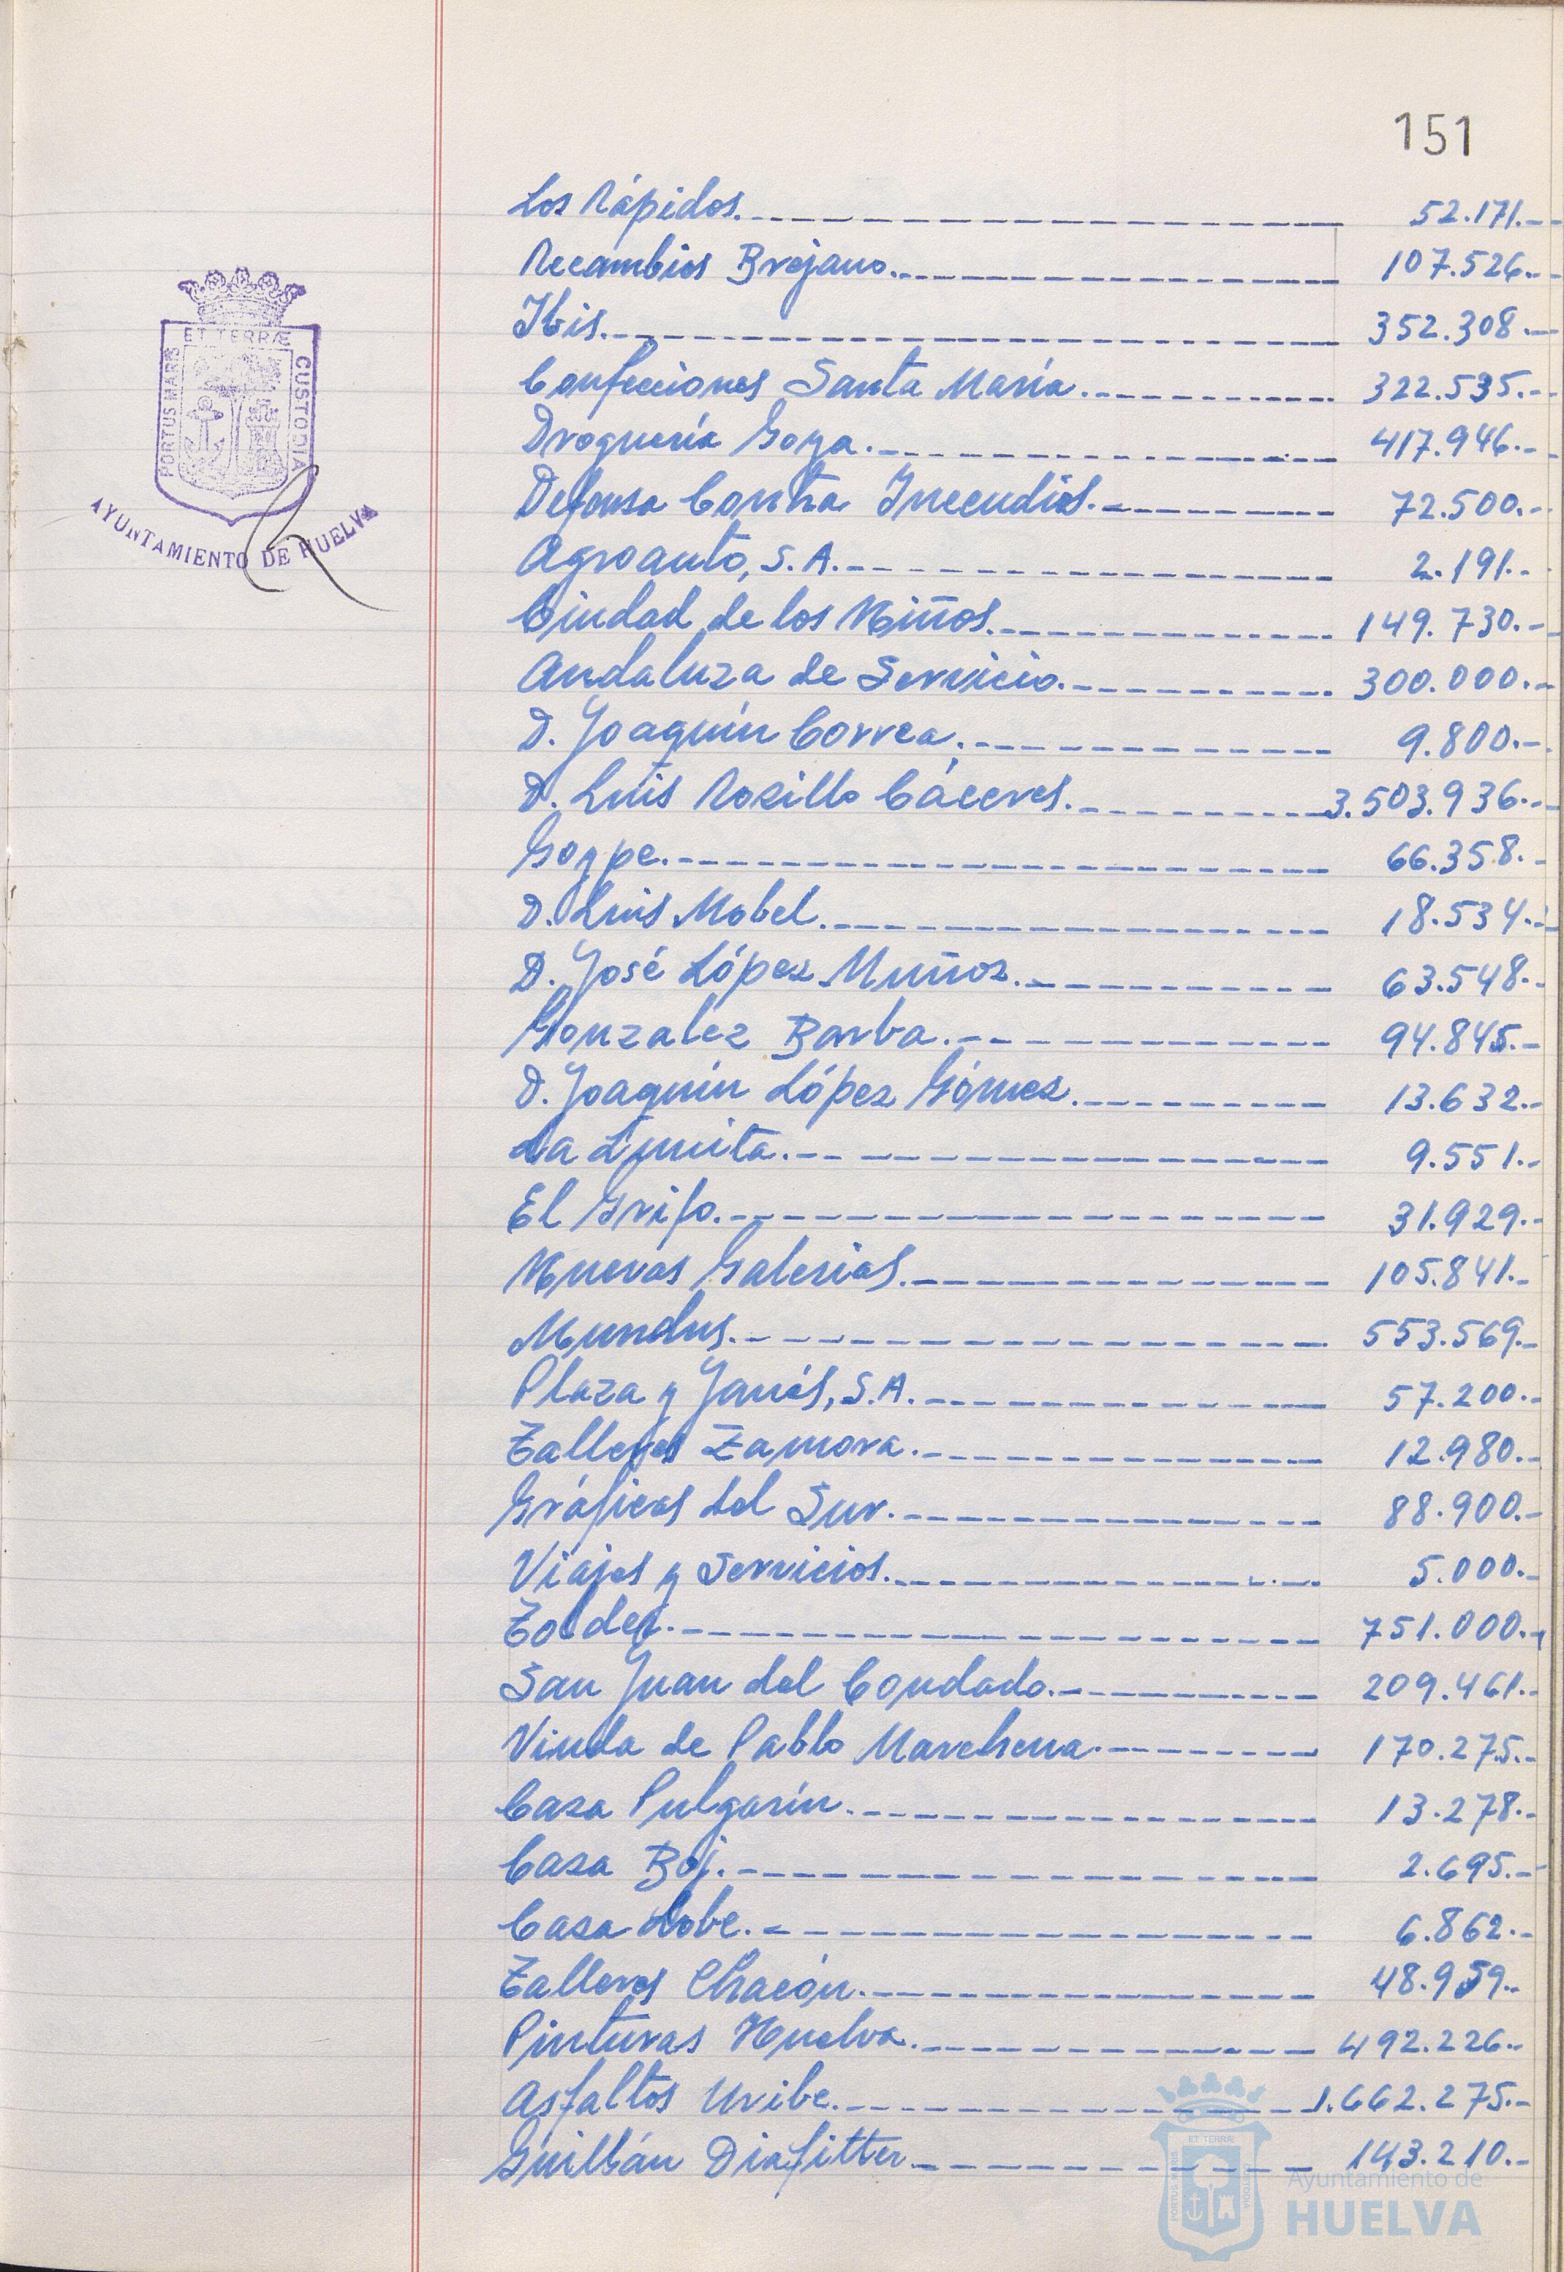 151
Los Rápidos 52.171.-
Recambios Brojano 107.526.-
Ibis 352.308.-
Confecciones Santa María 322.535.-
Droguería Goya 417.946.-
Defensa Contra Incendios 72.500.-
Agroauto, S.A. 2.191.-
Ciudad de los Niños 149.730.-
Andaluza de Servicio 300.000.-
D. Joaquín Correa 9.800.-
D. Luis Rosillo Cáceres 3.503.936.-
Goype 66.358.-
D. Luis Mobel 18.534.-
D. José López Muñoz 63.548.-
Gonzalez Barba 94.845.-
D. Joaquín López Gómez 13.632.-
La 9.551.-
El Grifo 31.929.-
Nuevas Galerias 105.841.-
Mundus 553.569.-
Plaza y Janés, S.A. 57.200.-
Talleres Zamora 12.980.-
Gráficas del Sur 88.900.-
Viajes y Servicios 5.000.-
751.000.-
San Juan del Condado 209.461.-
Viuda de Pablo Marchena 170.275.-
Casa Pulgarín 13.278.-
Casa Boj 2.695.-
Casa Lobe 6.862.-
Talleres Chacón 48.959.-
Pinturas Huelva 492.226.-
Asfaltos Uribe 1.662.275.-
Guillán Diafitter 143.210.-
ET TERRÆ
PORTUS MARIS
CUSTODIA
AYUNTAMIENTO DE HUELVA
Ayuntamiento de
HUELVA